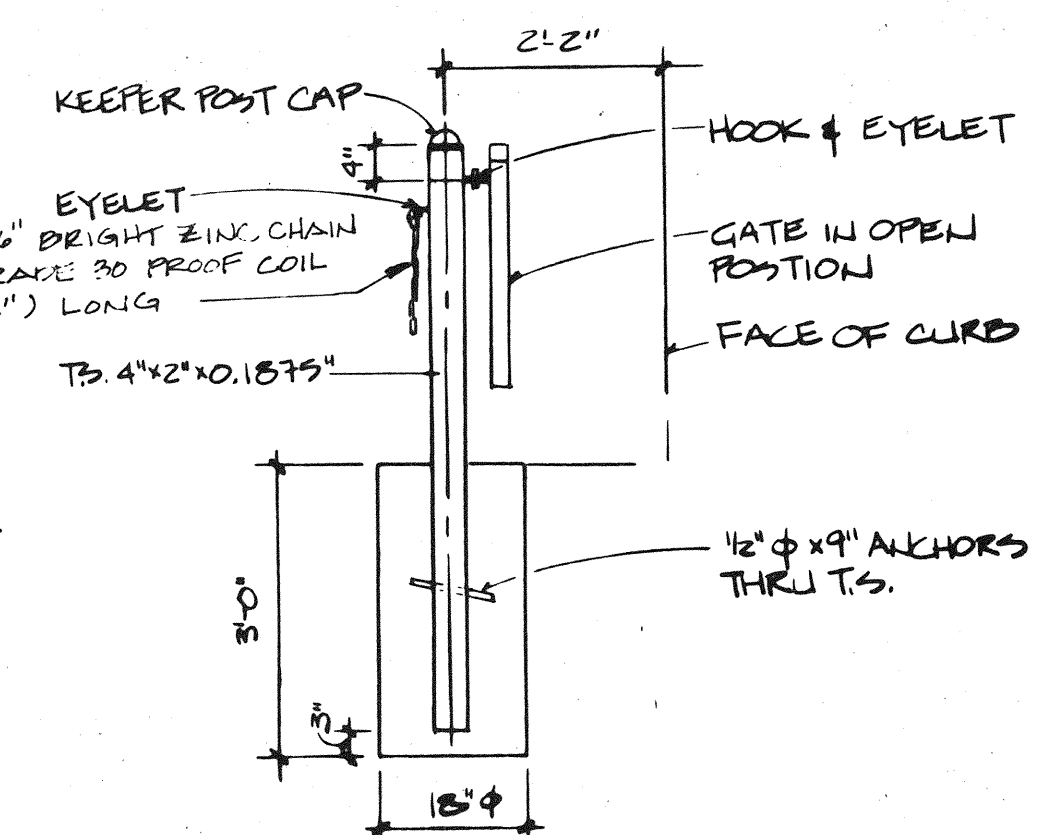 2'-2"
KEEPER POST CAP
4"
HOOK & EYELET
EYELET
6" BRIGHT ZINC CHAIN
RADE 30 PROOF COIL
") LONG
GATE IN OPEN
POSTION
FACE OF CURB
T.S. 4"x2"x0.1875"
1/2" ϕ x9" ANCHORS
THRU T.S.
3'-0"
3"
18" ϕ